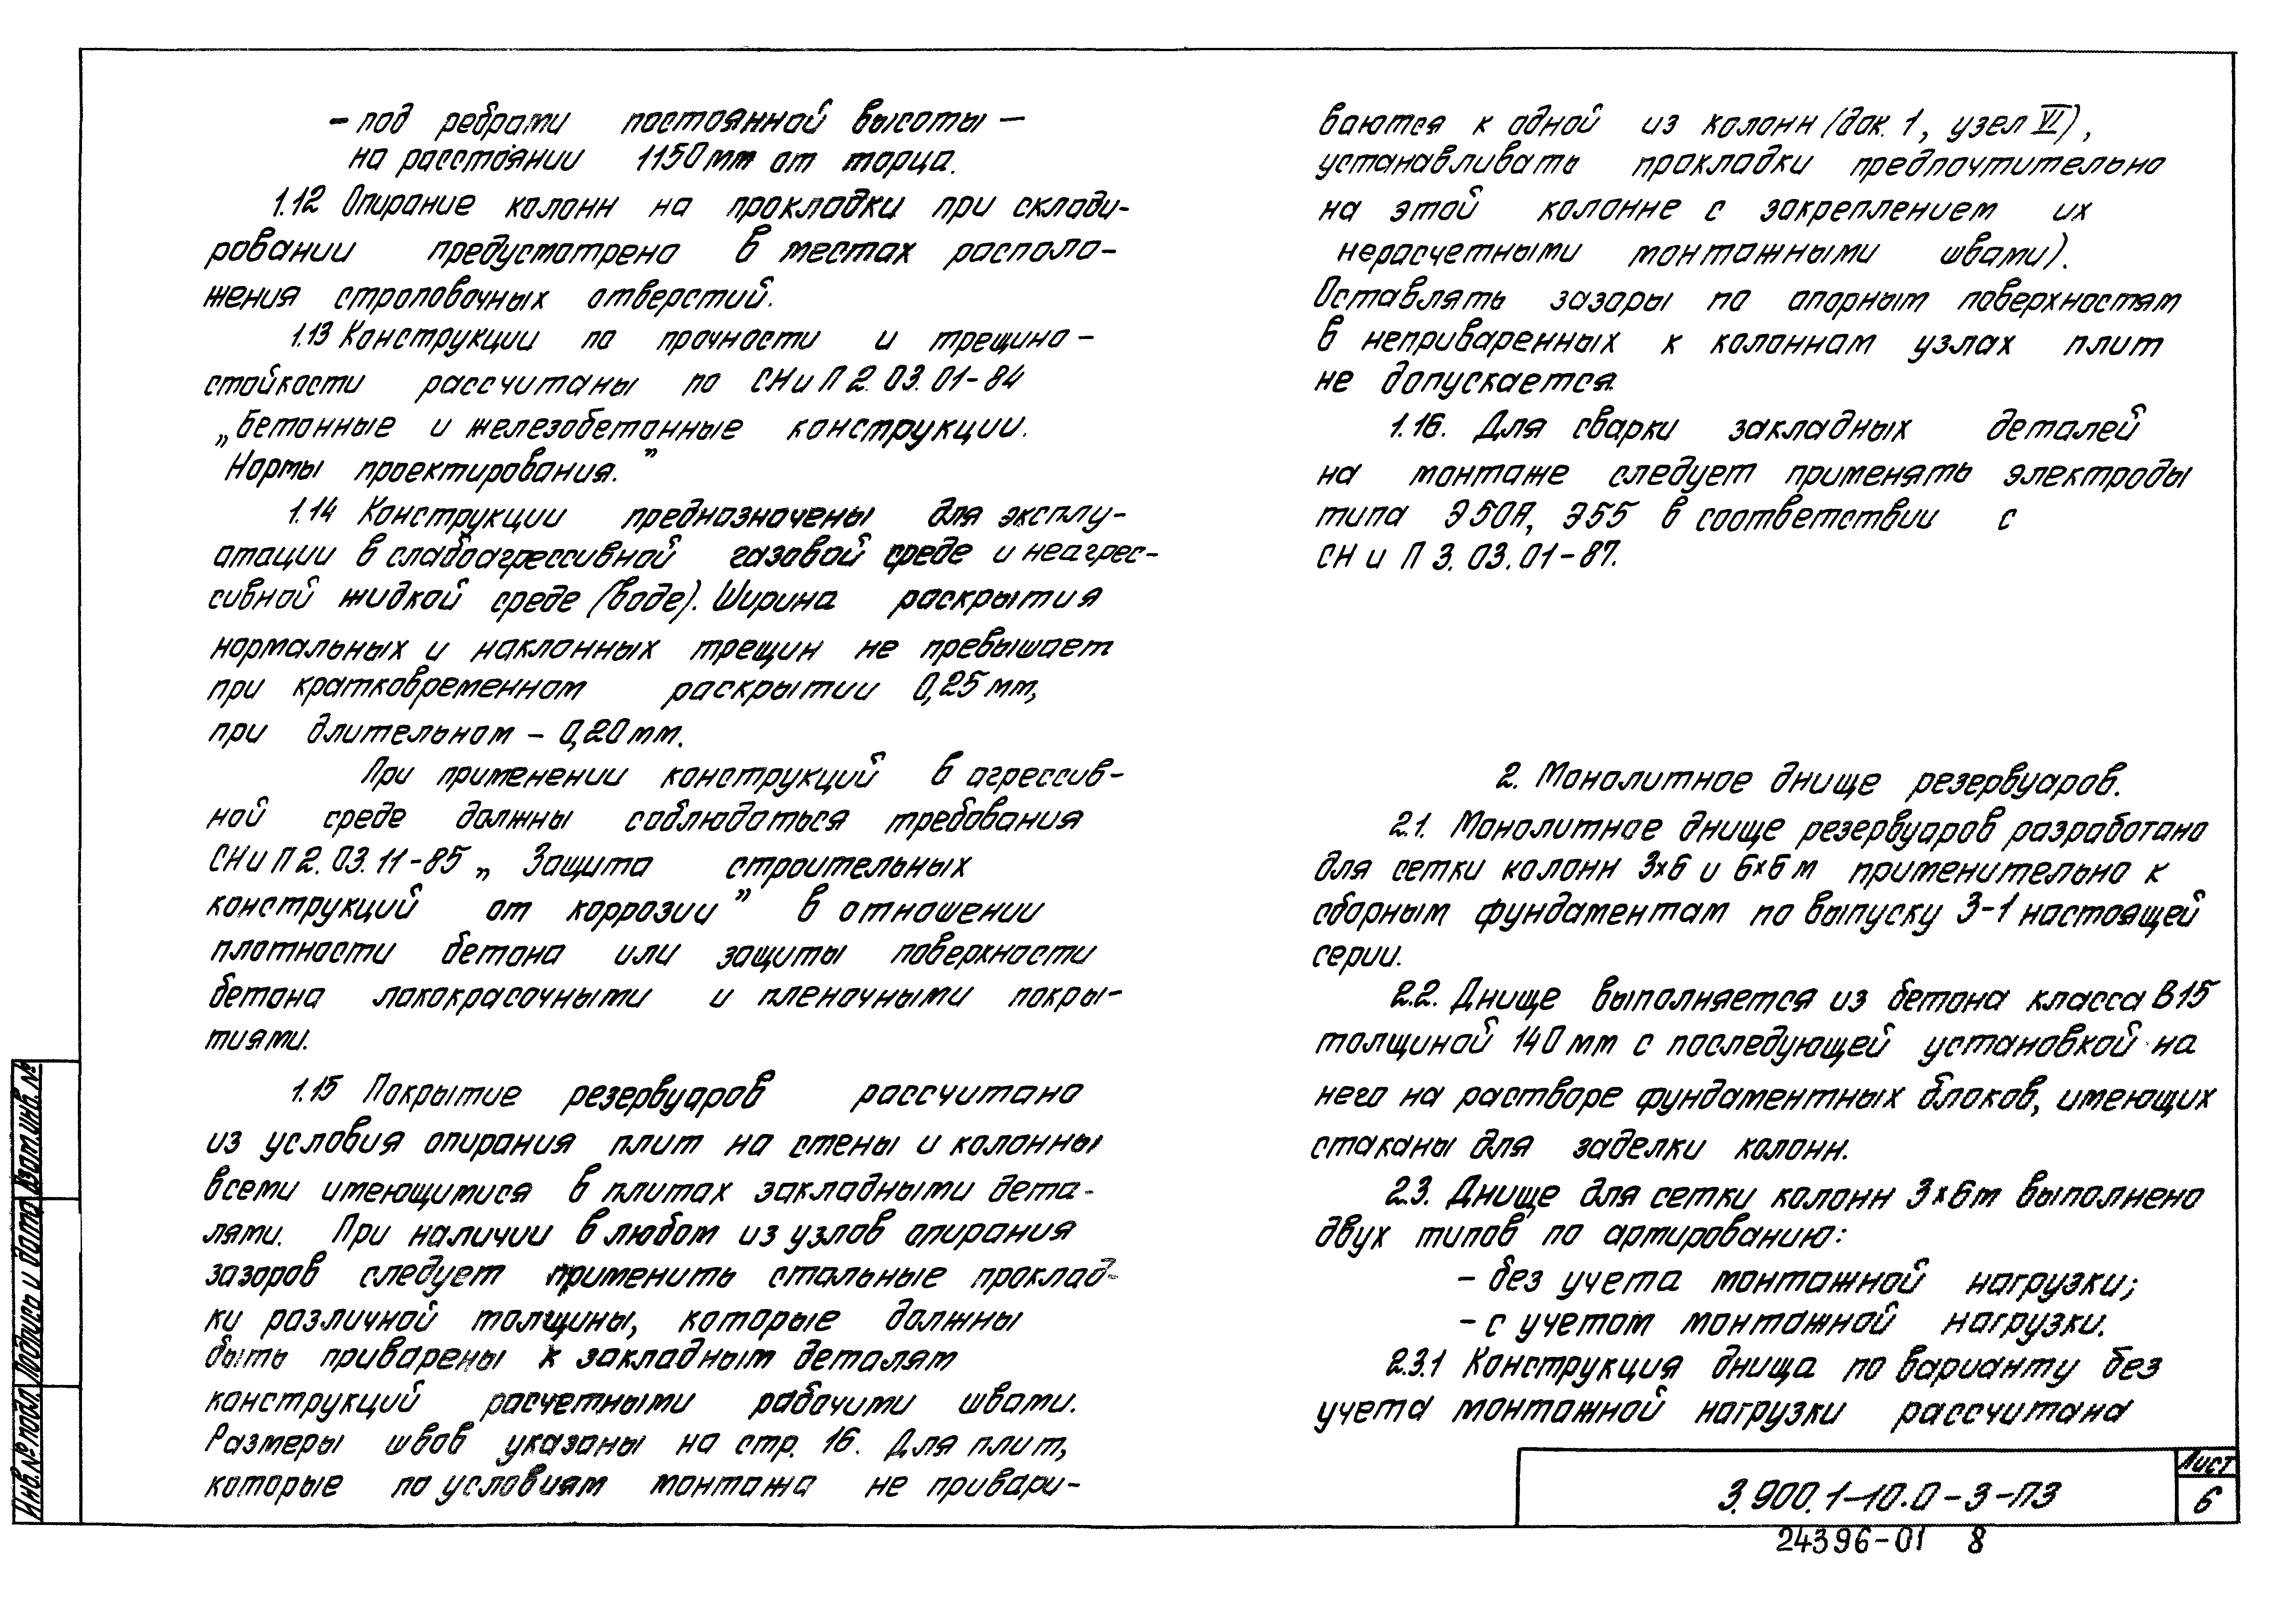 – под ребрами постоянной высоты –
на расстоянии 1150 мм от торца.
1.12 Опирание колонн на прокладки при склади-
ровании предусмотрено в местах располо-
жения строповочных отверстий.
1.13 Конструкции по прочности и трещино-
стойкости рассчитаны по СНиП 2.03.01-84
„Бетонные и железобетонные конструкции.
Нормы проектирования.”
1.14 Конструкции предназначены для эксплу-
атации в слабоагрессивной газовой среде и неагрес-
сивной жидкой среде (воде). Ширина раскрытия
нормальных и наклонных трещин не превышает
при кратковременном раскрытии 0,25 мм,
при длительном – 0,20 мм.
При применении конструкций в агрессив-
ной среде должны соблюдаться требования
СНиП 2.03.11-85 „Защита строительных
конструкций от коррозии” в отношении
плотности бетона или защиты поверхности
бетона лакокрасочными и пленочными покры-
тиями.
1.15 Покрытие резервуаров рассчитано
из условия опирания плит на стены и колонны
всеми имеющимися в плитах закладными дета-
лями. При наличии в любом из узлов опирания
зазоров следует применить стальные проклад-
ки различной толщины, которые должны
быть приварены к закладным деталям
конструкций расчетными рабочими швами.
Размеры швов указаны на стр. 16. Для плит,
которые по условиям монтажа не привари-
ваются к одной из колонн (док. 1, узел VI),
устанавливать прокладки предпочтительно
на этой колонне с закреплением их
нерасчетными монтажными швами).
Оставлять зазоры по опорным поверхностям
в неприваренных к колоннам узлах плит
не допускается.
1.16. Для сварки закладных деталей
на монтаже следует применять электроды
типа Э50А, Э55 в соответствии с
СНиП 3.03.01-87.
2. Монолитное днище резервуаров.
2.1. Монолитное днище резервуаров разработано
для сетки колонн 3×6 и 6×6 м применительно к
сборным фундаментам по выпуску 3-1 настоящей
серии.
2.2. Днище выполняется из бетона класса В15
толщиной 140 мм с последующей установкой на
него на растворе фундаментных блоков, имеющих
стаканы для заделки колонн.
2.3. Днище для сетки колонн 3×6 м выполнено
двух типов по армированию:
– без учета монтажной нагрузки;
– с учетом монтажной нагрузки.
2.3.1 Конструкция днища по варианту без
учета монтажной нагрузки рассчитана
Инв. № подл. Подпись и дата Взам. инв. №
3.900.1-10.0-3-ПЗ
Лист
6
24396-01 8